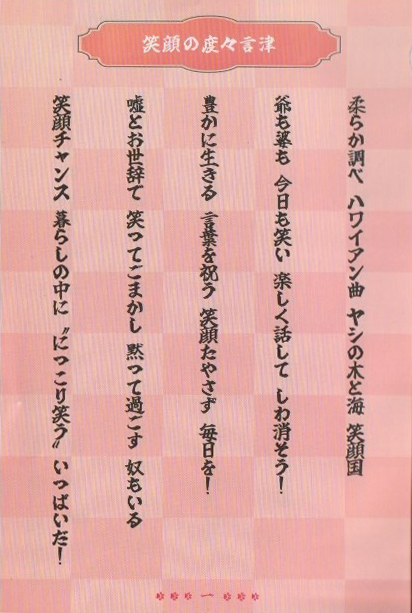 笑顔の度々言津
柔らか調べ ハワイアン曲 ヤシの木と海 笑顔国
爺も婆も 今日も笑い 楽しく話して しわ消そう!
豊かに生きる 言葉を祝う 笑顔たやさず 毎日を!
嘘とお世辞で 笑ってごまかし 黙って過ごす 奴もいる
笑顔チャンス 暮らしの中に 〝にっこり笑う〟 いっぱいだ!
一